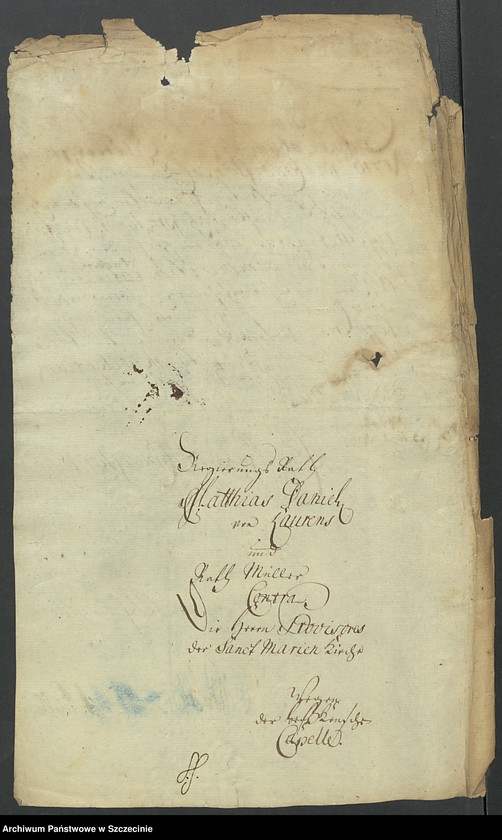 Regierungs Rath
Matthias Daniel
von Laurens
und
Rath Müller
Contra
Die Herrn Provisores
der Sanct Marien Kirche
Wegen
der
Capelle.
Archiwum Państwowe w Szczecinie